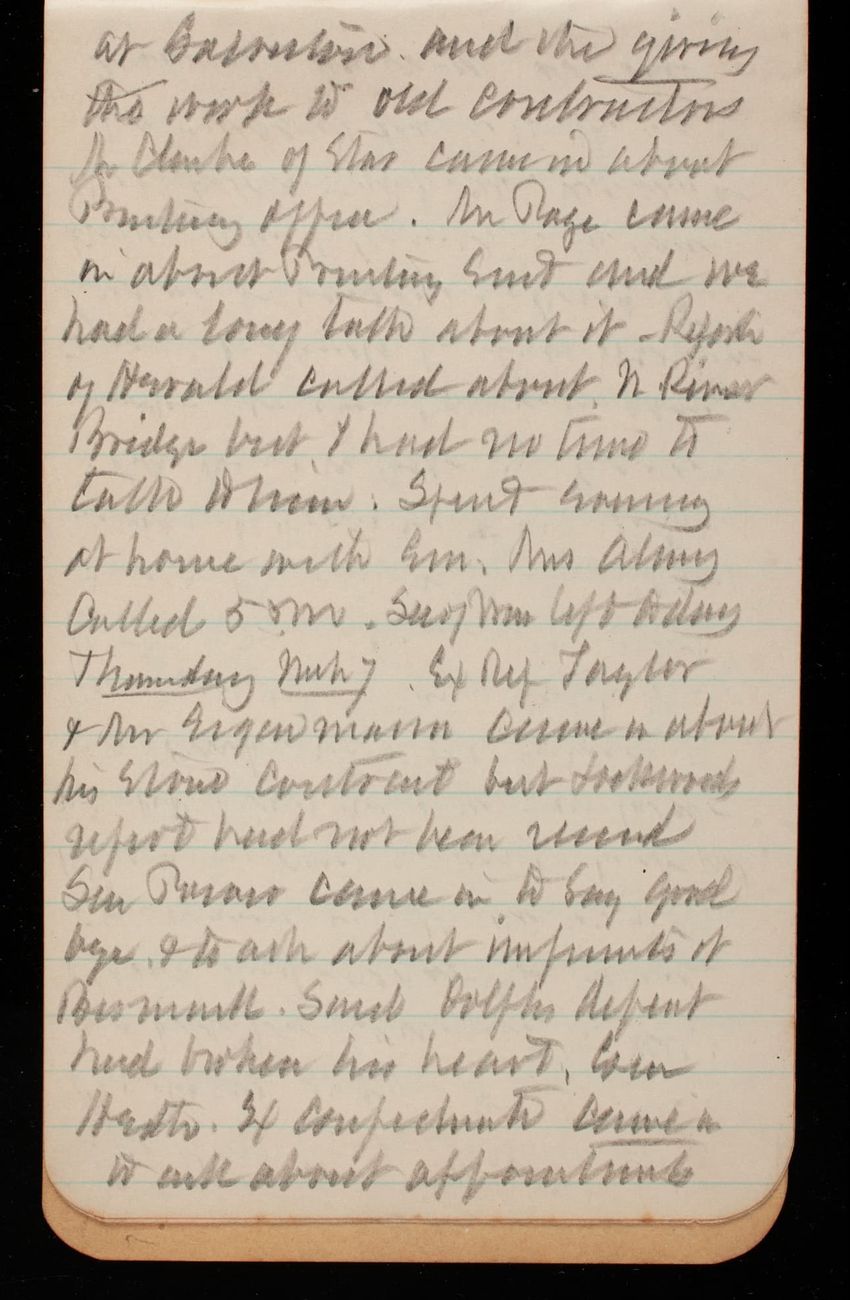 at Galveston. and the giving
the work to old contractors
Mr Clarke of Star came in about
Printing office. Mr Page came
in about Printing Bust and we
had a long talk about it - Reporter
of Herald called about N River
Bridge but I had no time to
talk to him. Spent evening
at home with Em. Mrs Almy
Called 5 P.M. Secy War left today
Thursday Mch 7. Ex Rep Taylor
& Mr came in about
his Stone Contract but Lockwoods
report had not been received
Sen came in to say good
bye. & to ask about imprmts at
Bismarck. Said Dolphs defeat
had broken his heart. Gen
Heth. Ex Confederate came in
to ask about appointments